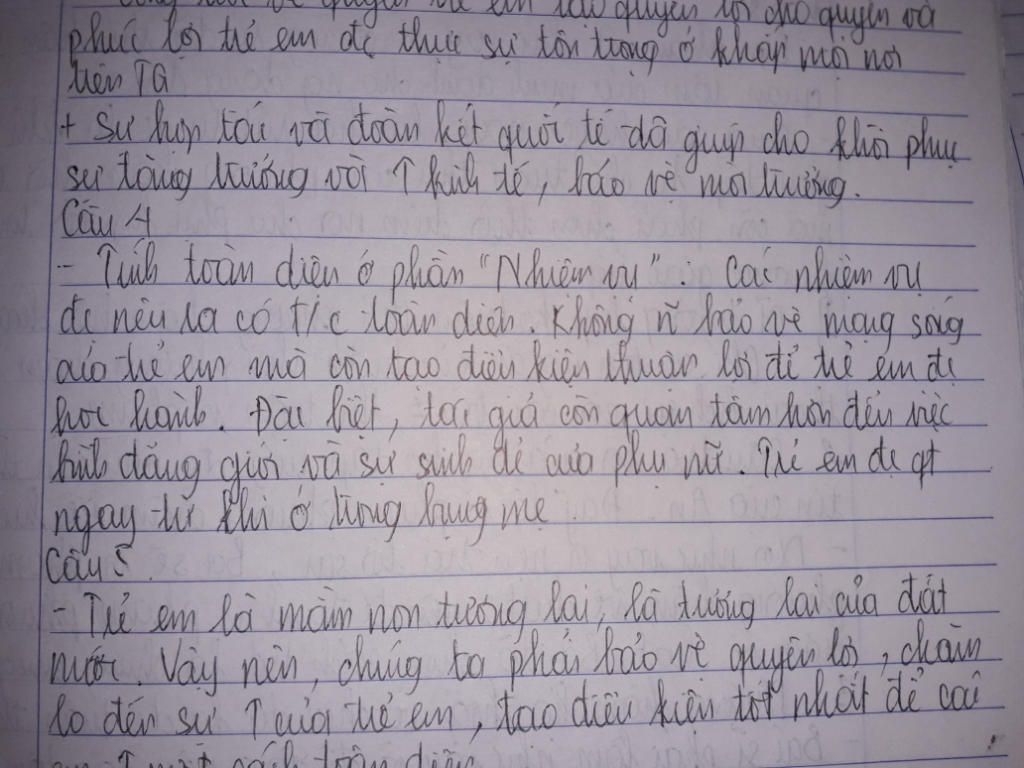 quyền lợi cho quyền và
phúc lợi trẻ em đc thực sự tôn trọng ở khắp mọi nơi
trên TG
+ Sự hợp tác và đoàn kết quốc tế đã giúp cho khôi phục
sự tăng trưởng với ↑ kinh tế, bảo vệ môi trường.
Câu 4
- Tính toàn diện ở phần "Nhiệm vụ": Các nhiệm vụ
đc nêu ra có T/c toàn diện. Không ñ bảo vệ mạng sống
của trẻ em mà còn tạo điều kiện thuận lợi để trẻ em đc
học hành. Đặc biệt, tác giả còn quan tâm hơn đến việc
bình đẳng giới và sự sinh đẻ của phụ nữ. Trẻ em đc qt
ngay từ khi ở trong bụng mẹ.
Câu 5
- Trẻ em là mầm non tương lai, là tương lai của đất
nước. Vậy nên, chúng ta phải bảo vệ quyền lợi, chăm
lo đến sự ↑ của trẻ em, tạo điều kiện tốt nhất để các
↑ một cách toàn diện